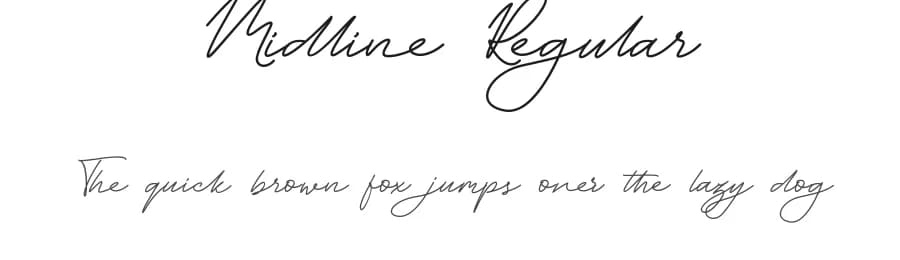 Midline Regular
The quick brown fox jumps over the lazy dog